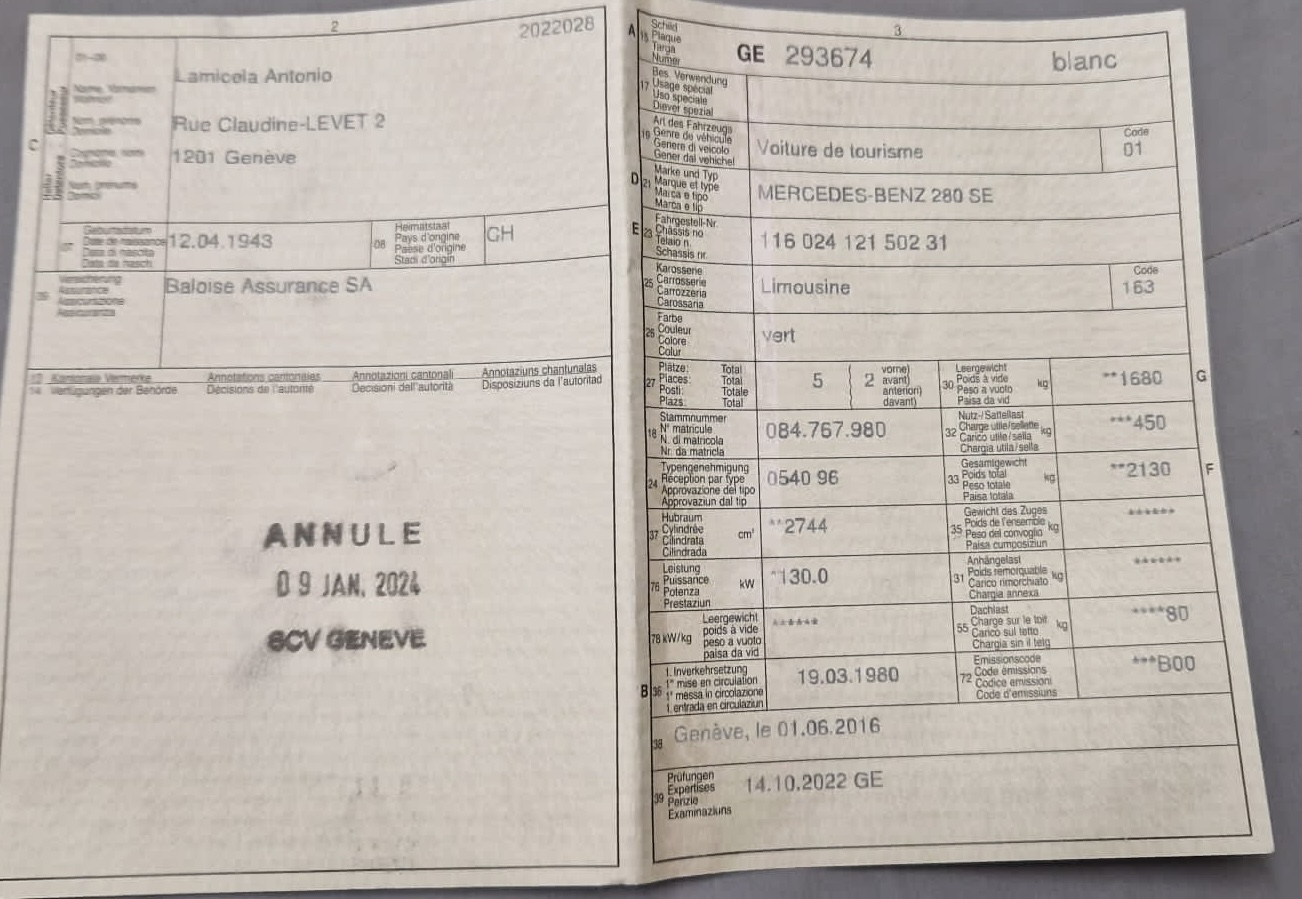 2
2022028
C
Lamicela Antonio
Rue Claudine-LEVET 2
1201 Genève
07 Geburtsdatum
Date de naissance
Data di nascita
Data da nasch
12.04.1943
08 Heimatstaat
Pays d'origine
Paese d'origine
Stadi d'origin
CH
09 Versicherung
Assurance
Assicurazione
Assicuranza
Baloise Assurance SA
13 Kantonale Vermerke
14 Verfügungen der Behörde
Annotations cantonales
Décisions de l'autorité
Annotazioni cantonali
Decisioni dell'autorità
Annotaziuns chantunalas
Disposiziuns da l'autoritad
ANNULE
09 JAN. 2024
SCV GENEVE
3
A 15 Schild
Plaque
Targa
Numer
GE 293674 blanc
17 Bes. Verwendung
Usage spécial
Uso speciale
Diever spezial
19 Art des Fahrzeugs
Genre de véhicule
Genere di veicolo
Gener dal vehichel
Voiture de tourisme
Code
01
D 21 Marke und Typ
Marque et type
Marca e tipo
Marca e tip
MERCEDES-BENZ 280 SE
E 23 Fahrgestell-Nr.
Châssis no
Telaio n.
Schassis nr.
116 024 121 502 31
25 Karosserie
Carrosserie
Carrozzeria
Carossaria
Limousine
Code
163
26 Farbe
Couleur
Colore
Colur
vert
27 Plätze: Total
Places: Total
Posti: Totale
Plazs: Total
5 ( 2 vorne)
avant)
anteriori)
davant)
30 Leergewicht
Poids à vide kg
Peso a vuoto
Paisa da vid
**1680
G
18 Stammnummer
N° matricule
N. di matricola
Nr. da matricla
084.767.980
32 Nutz-/Sattellast
Charge utile/sellette kg
Carico utile/sella
Chargia utila/sella
***450
24 Typengenehmigung
Réception par type
Approvazione del tipo
Approvaziun dal tip
0540 96
33 Gesamtgewicht
Poids total kg
Peso totale
Paisa totala
**2130
F
37 Hubraum
Cylindrée cm³
Cilindrata
Cilindrada
**2744
35 Gewicht des Zuges
Poids de l'ensemble kg
Peso del convoglio
Paisa cumposiziun
******
76 Leistung
Puissance kW
Potenza
Prestaziun
*130.0
31 Anhängelast
Poids remorquable kg
Carico rimorchiato
Chargia annexa
******
78 kW/kg Leergewicht
poids à vide
peso a vuoto
paisa da vid
******
55 Dachlast
Charge sur le toit kg
Carico sul tetto
Chargia sin il tetg
****80
B 36 1. Inverkehrsetzung
1re mise en circulation
1a messa in circolazione
1. entrada en circulaziun
19.03.1980
72 Emissionscode
Code émissions
Codice emissioni
Code d'emissiuns
***B00
38 Genève, le 01.06.2016
39 Prüfungen
Expertises
Perizie
Examinaziuns
14.10.2022 GE